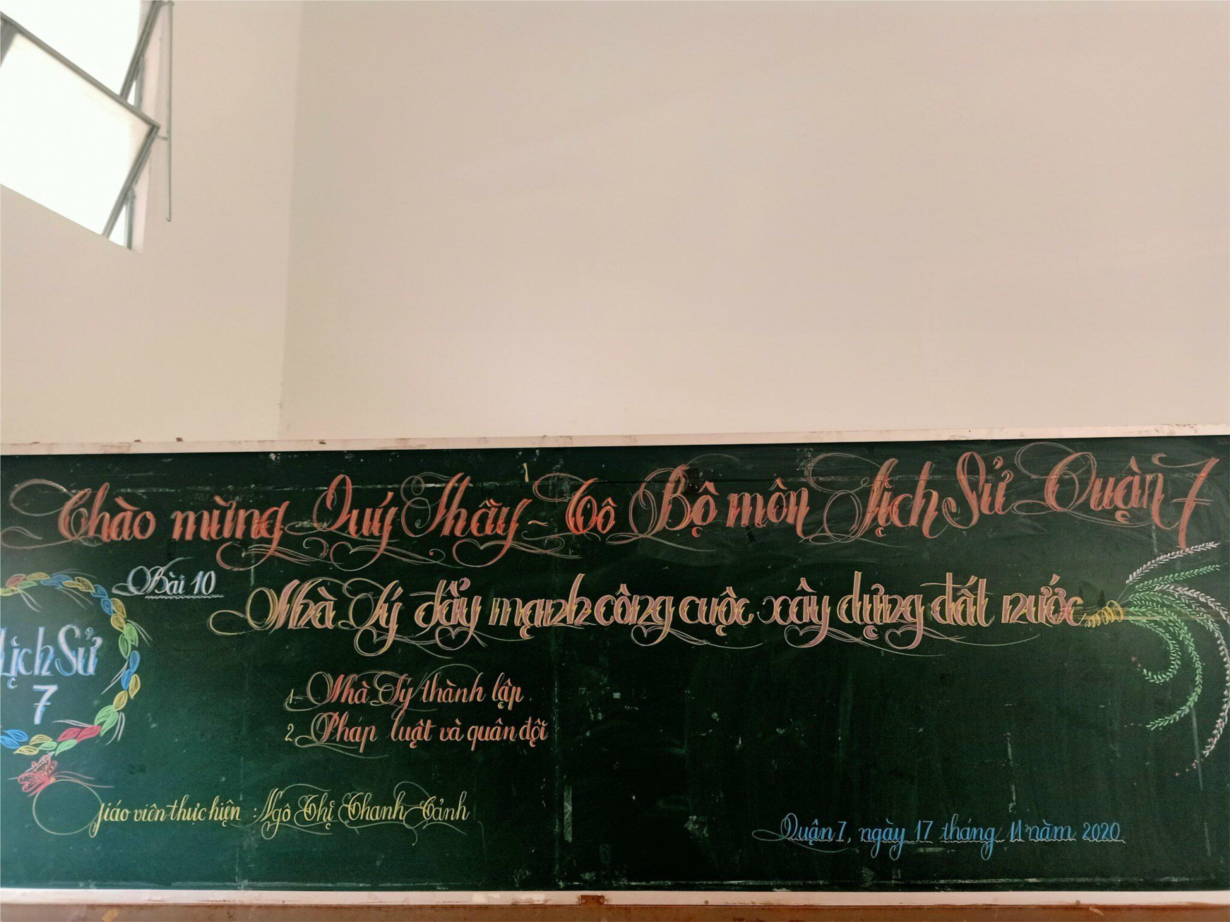 Chào mừng Quý Thầy - Cô Bộ môn Lịch Sử Quận 7
Bài 10
Nhà Lý đẩy mạnh công cuộc xây dựng đất nước
Lịch Sử
7
1. Nhà Lý thành lập
2. Pháp luật và quân đội
Giáo viên thực hiện : Ngô Thị Thanh Cảnh
Quận 7, ngày 17 tháng 11 năm 2020